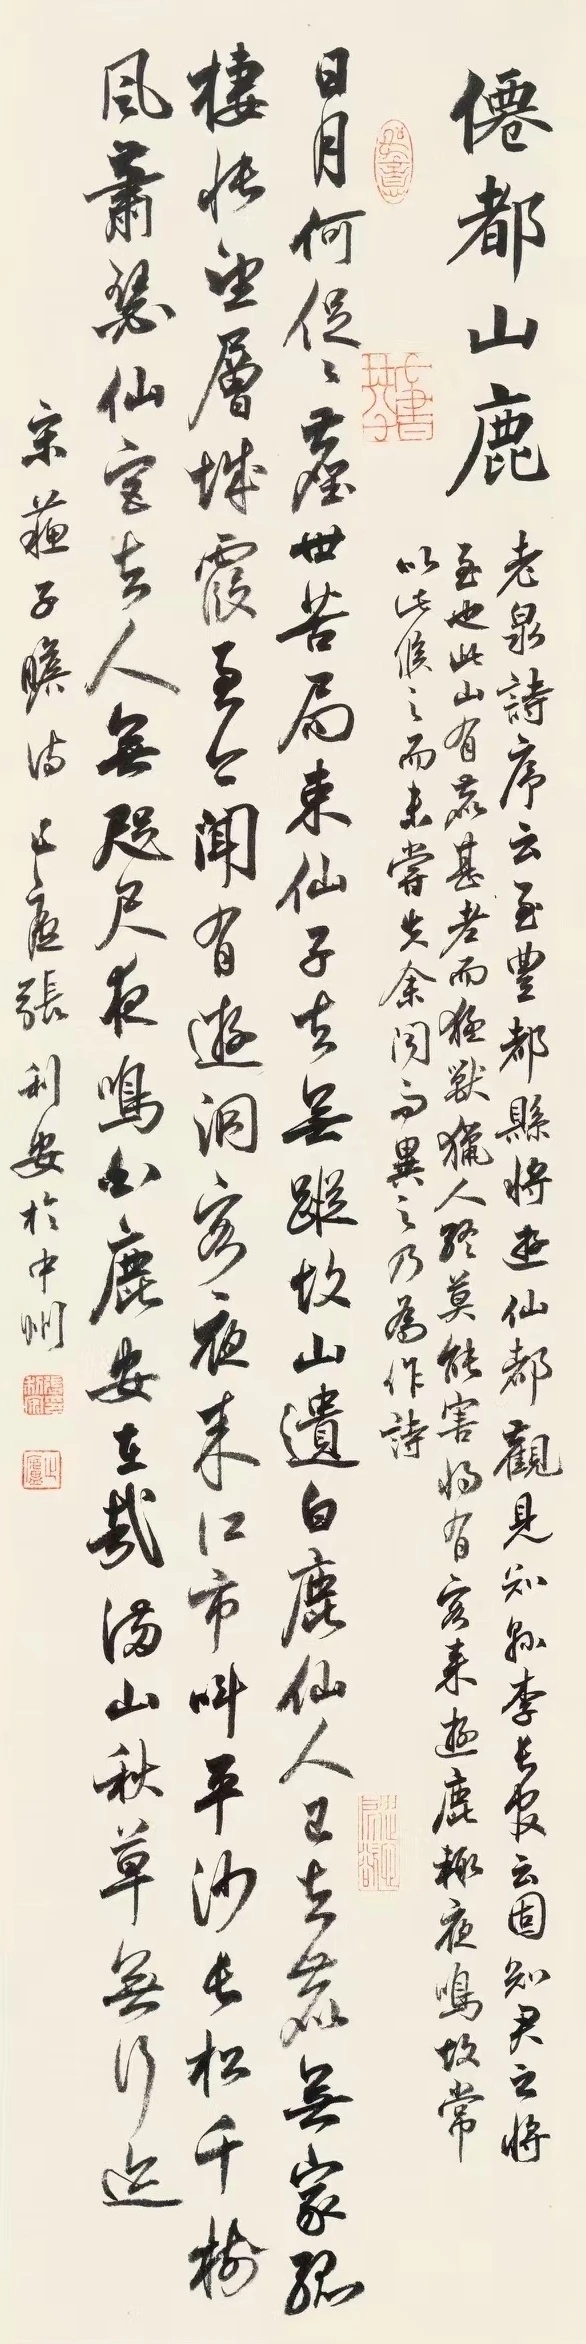 僊都山鹿
老泉詩序云至豐都縣將遊仙都觀見知縣李長官云固知君之將
至也此山有鹿甚老而猛獸獵人終莫能害將有客來遊鹿輒夜鳴故常
以此候之而未嘗失余聞而異之乃為作詩
日月何促〻塵世苦局束仙子去無蹤故山遺白鹿仙人已去鹿無家孤
棲悵望層城霞至今聞有遊洞客夜来江市叫平沙長松千樹
風蕭瑟仙宮去人無咫尺夜鳴白鹿安在哉滿山秋草無行迹
宋蘇子瞻詩 張利安於中州